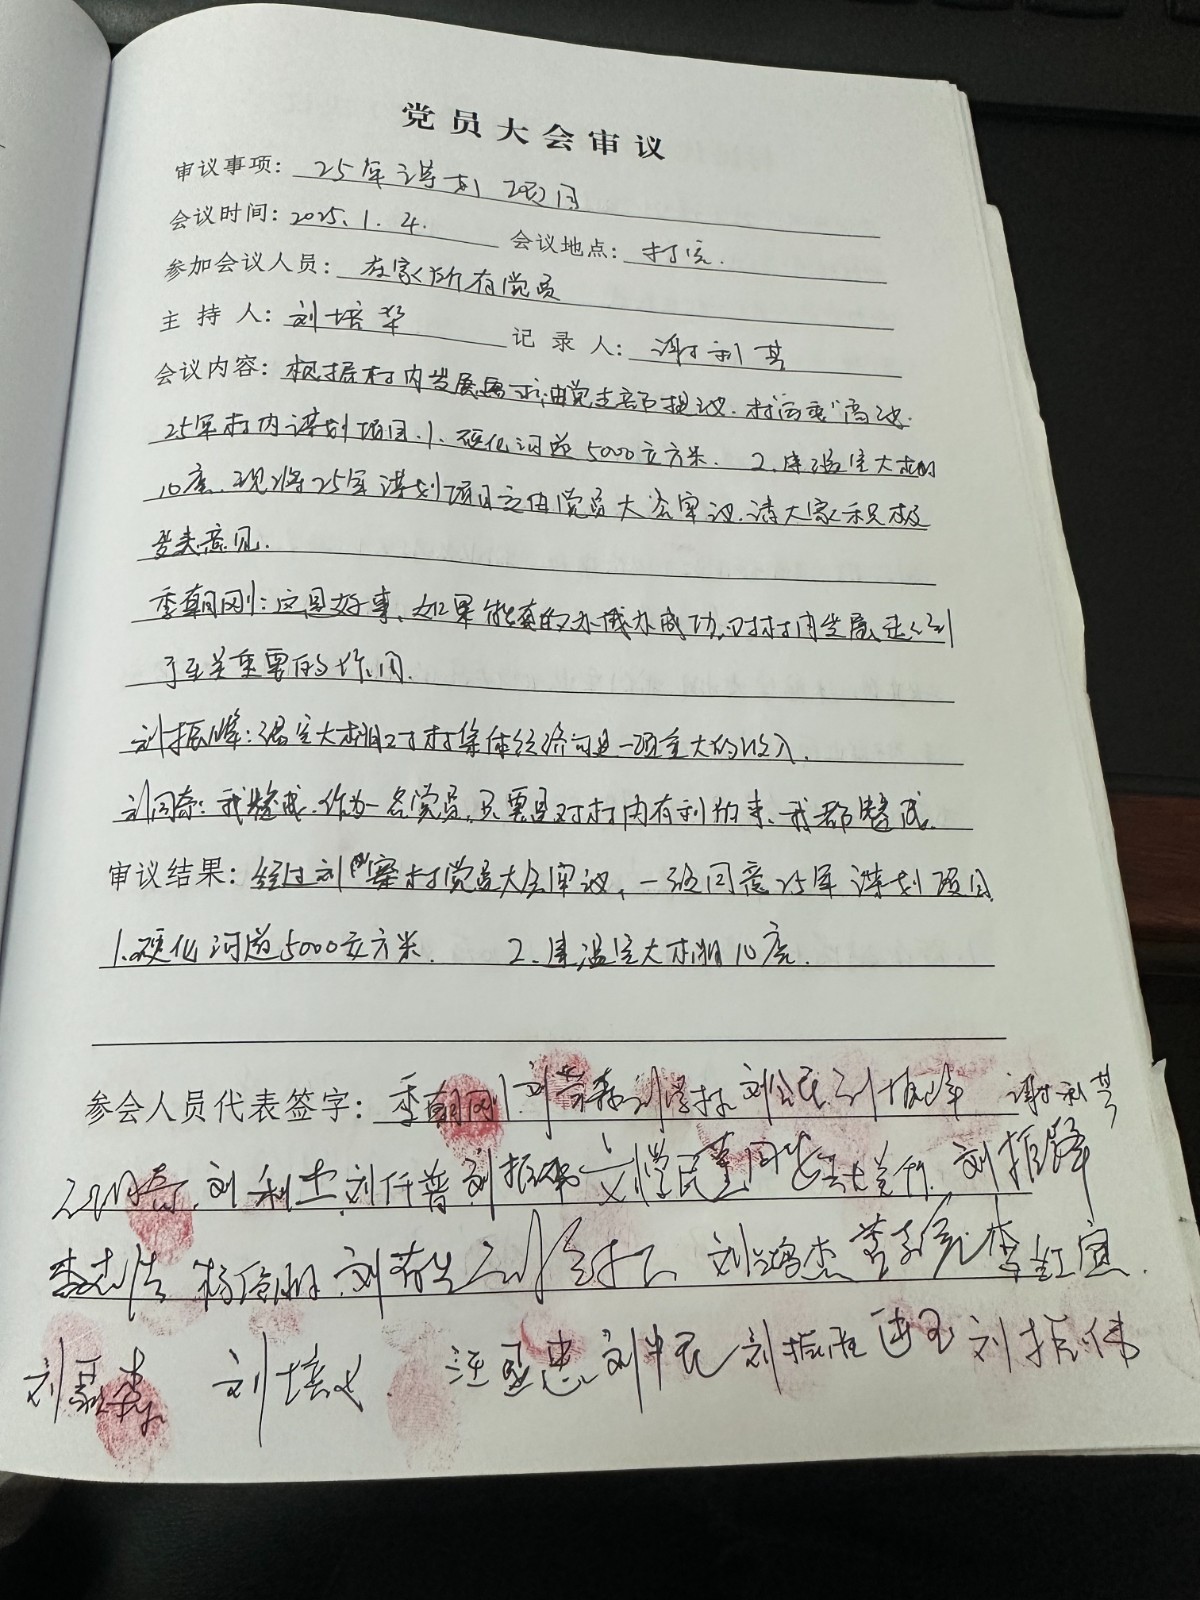 党员大会审议
审议事项：25年谋划项目
会议时间：2025.1.4. 会议地点：村室.
参加会议人员：在家所有党员
主持人：刘培华 记录人：谢利芳
会议内容：根据村内发展需求,由党支部提议.村两委"商议.
25年村内谋划项目.1.硬化河道5000立方米. 2.建温室大棚
10座.现将25年谋划项目交由党员大会审议.请大家积极
发表意见.
季朝刚：这是好事、如果能真的办成办成功,对村内发展起到
了至关重要的作用.
刘振峰：温室大棚对村集体经济可是一项重大的收入.
刘同奇：我赞成.作为一名党员,只要是对村内有利的事、我都赞成.
审议结果：经过刘寨村党员大会审议,一致同意25年谋划项目
1.硬化河道5000立方米. 2.建温室大棚10座.
参会人员代表签字：季朝刚 刘学林 刘公民 刘振峰 谢利芳
刘利士 刘仟普 刘学民 刘振锋
李志法 刘鸿杰 李红宽
刘培义 汪亚忠 刘中民 刘振伟